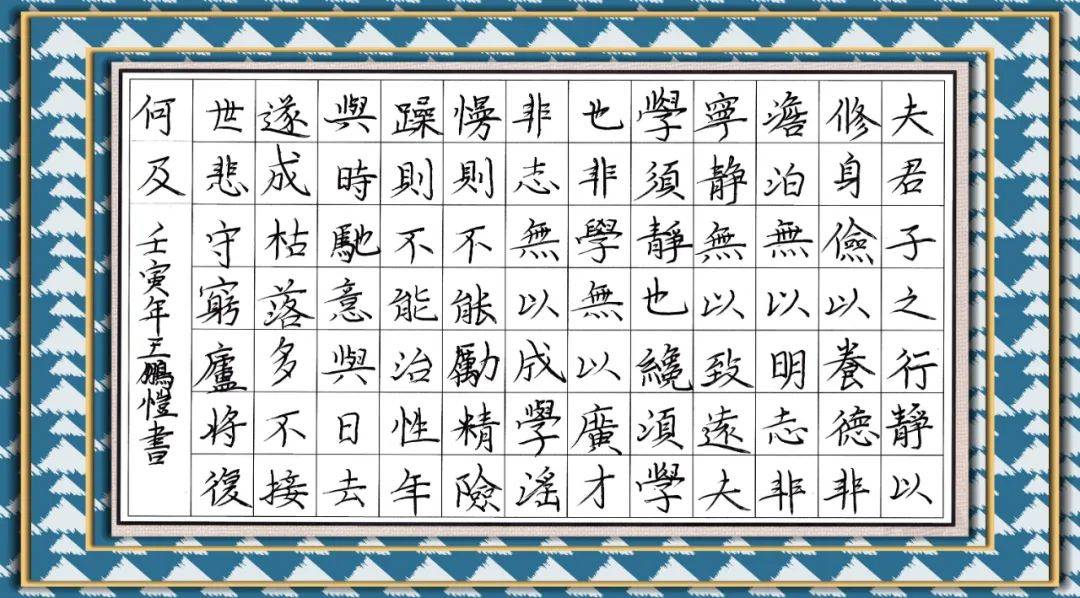 夫君子之行靜以
修身儉以養德非
澹泊無以明志非
寧静無以致遠夫
學須靜也纔須學
也非學無以廣才
非志無以成學滛
慢則不能勵精險
躁則不能治性年
與時馳意與日去
遂成枯落多不接
世悲守窮廬將復
何及
壬寅年王鵬愷書